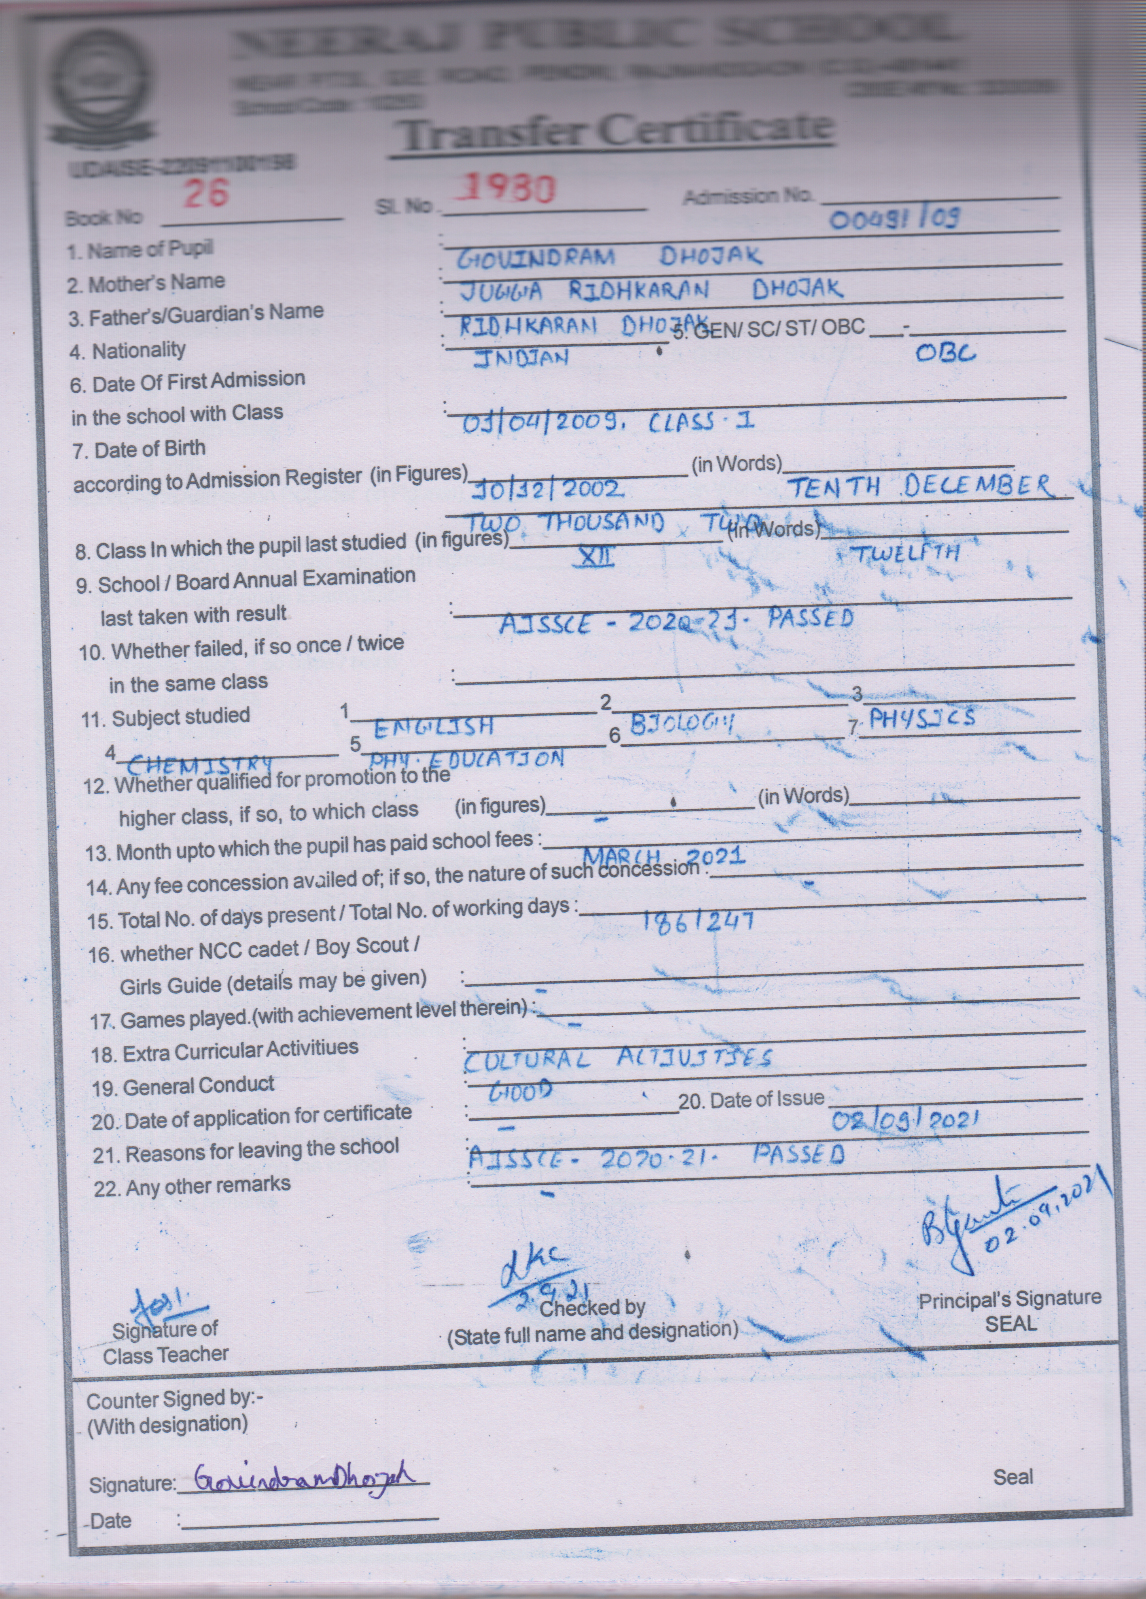 NEERAJ PUBLIC SCHOOL
School Code
Transfer Certificate
UDAISE-22091100198
Book No 26 Sl. No. 1980 Admission No. 00491/09
1. Name of Pupil : GOVINDRAM DHOJAK
2. Mother's Name : JUGGA RIDHKARAN DHOJAK
3. Father's/Guardian's Name : RIDHKARAN DHOJAK
4. Nationality : INDIAN 5. GEN/ SC/ ST/ OBC - OBC
6. Date Of First Admission
in the school with Class : 01/04/2009. CLASS-I
7. Date of Birth
according to Admission Register (in Figures) 10/12/2002 (in Words) TENTH DECEMBER
TWO THOUSAND TWO
8. Class In which the pupil last studied (in figures) XII (in Words) TWELFTH
9. School / Board Annual Examination
last taken with result : AISSCE - 2020-21- PASSED
10. Whether failed, if so once / twice
in the same class :
11. Subject studied 1 ENGLISH 2 BIOLOGY 3 PHYSICS
4 CHEMISTRY 5 PHY. EDUCATION 6 7
12. Whether qualified for promotion to the
higher class, if so, to which class (in figures) - (in Words)
13. Month upto which the pupil has paid school fees : MARCH 2021
14. Any fee concession availed of; if so, the nature of such concession : -
15. Total No. of days present / Total No. of working days : 186/247
16. whether NCC cadet / Boy Scout /
Girls Guide (details may be given) : -
17. Games played.(with achievement level therein) : -
18. Extra Curricular Activitiues : CULTURAL ACTIVITIES
19. General Conduct : GOOD
20. Date of application for certificate : - 20. Date of Issue 02/09/2021
21. Reasons for leaving the school : AISSCE - 2020-21- PASSED
22. Any other remarks : -
02.09.2021
2.9.21
Signature of
Class Teacher
Checked by
(State full name and designation)
Principal's Signature
SEAL
Counter Signed by:-
(With designation)
Signature: Govindram Dhojak
Seal
Date :